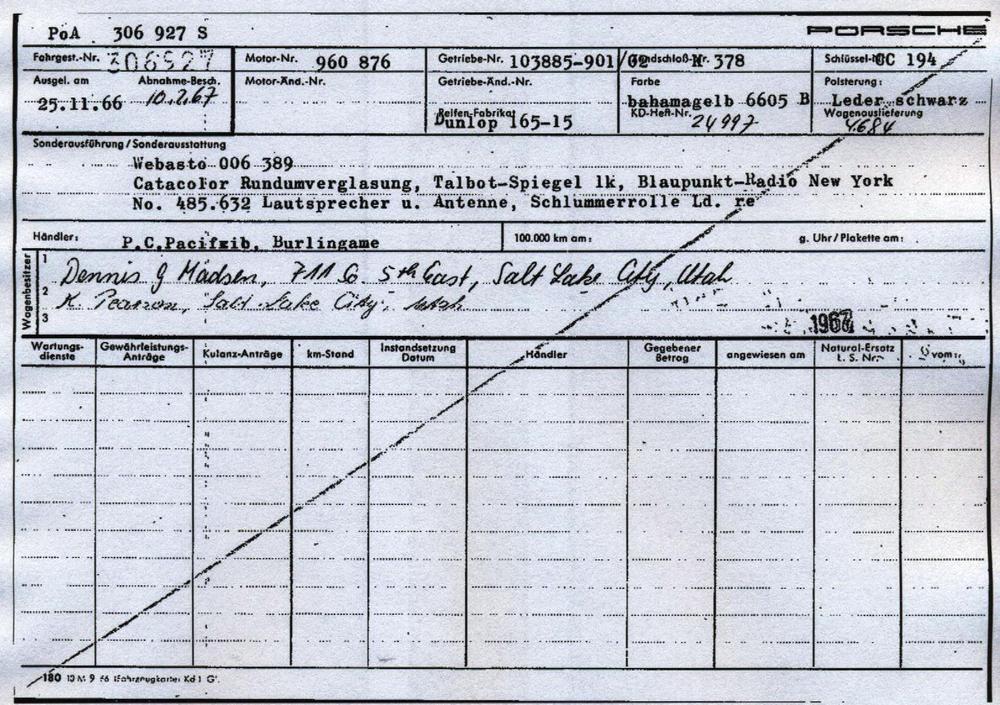 PoA 306 927 S
PORSCHE
Fahrgest.-Nr. 306927
Motor-Nr. 960 876
Getriebe-Nr. 103885-901/02
Zündschloß-Nr. 378
Schlüssel-Nr. CC 194
Ausgel. am Abnahme-Besch.
Motor-Änd.-Nr.
Getriebe-Änd.-Nr.
Farbe
Polsterung:
25.11.66 10.2.67
bahamagelb 6605 B
Leder schwarz
Reifen-Fabrikat
KD-Heft-Nr. 24997
Wagenauslieferung
Dunlop 165-15
4684
Sonderausführung/Sonderausstattung
Webasto 006 389
Catacolor Rundumverglasung, Talbot-Spiegel lk, Blaupunkt-Radio New York
No. 485.632 Lautsprecher u. Antenne, Schlummerrolle Ld. re
Händler: P.C.Pacifzib, Burlingame
100.000 km am:
g. Uhr/Plakette am:
Wagenbesitzer
1 Dennis J Madsen, 711 So 5th East, Salt Lake City, Utah
2 K. Pearson, Salt Lake City, Utah
3
1967
Wartungs-dienste
Gewährleistungs-Anträge
Kulanz-Anträge
km-Stand
Instandsetzung Datum
Händler
Gegebener Betrog
angewiesen am
Natural-Ersatz L. S. Nr.
vom:
180